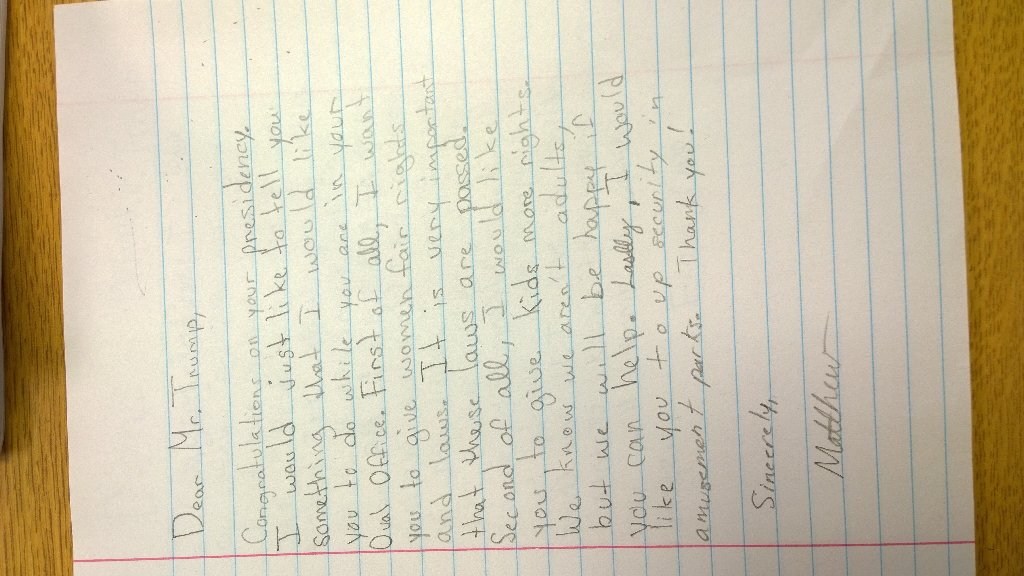 Dear Mr. Trump,
Congratulations on your presidency.
I would just like to tell you
something that I would like
you to do while you are in your
Oval Office. First of all, I want
you to give women fair rights
and laws. It is very important
that these laws are passed.
Second of all, I would like
you to give kids more rights.
We know we aren't adults,
but we will be happy if
you can help. Lastly, I would
like you to up security in
amusement parks. Thank you!
Sincerely,
Matthew